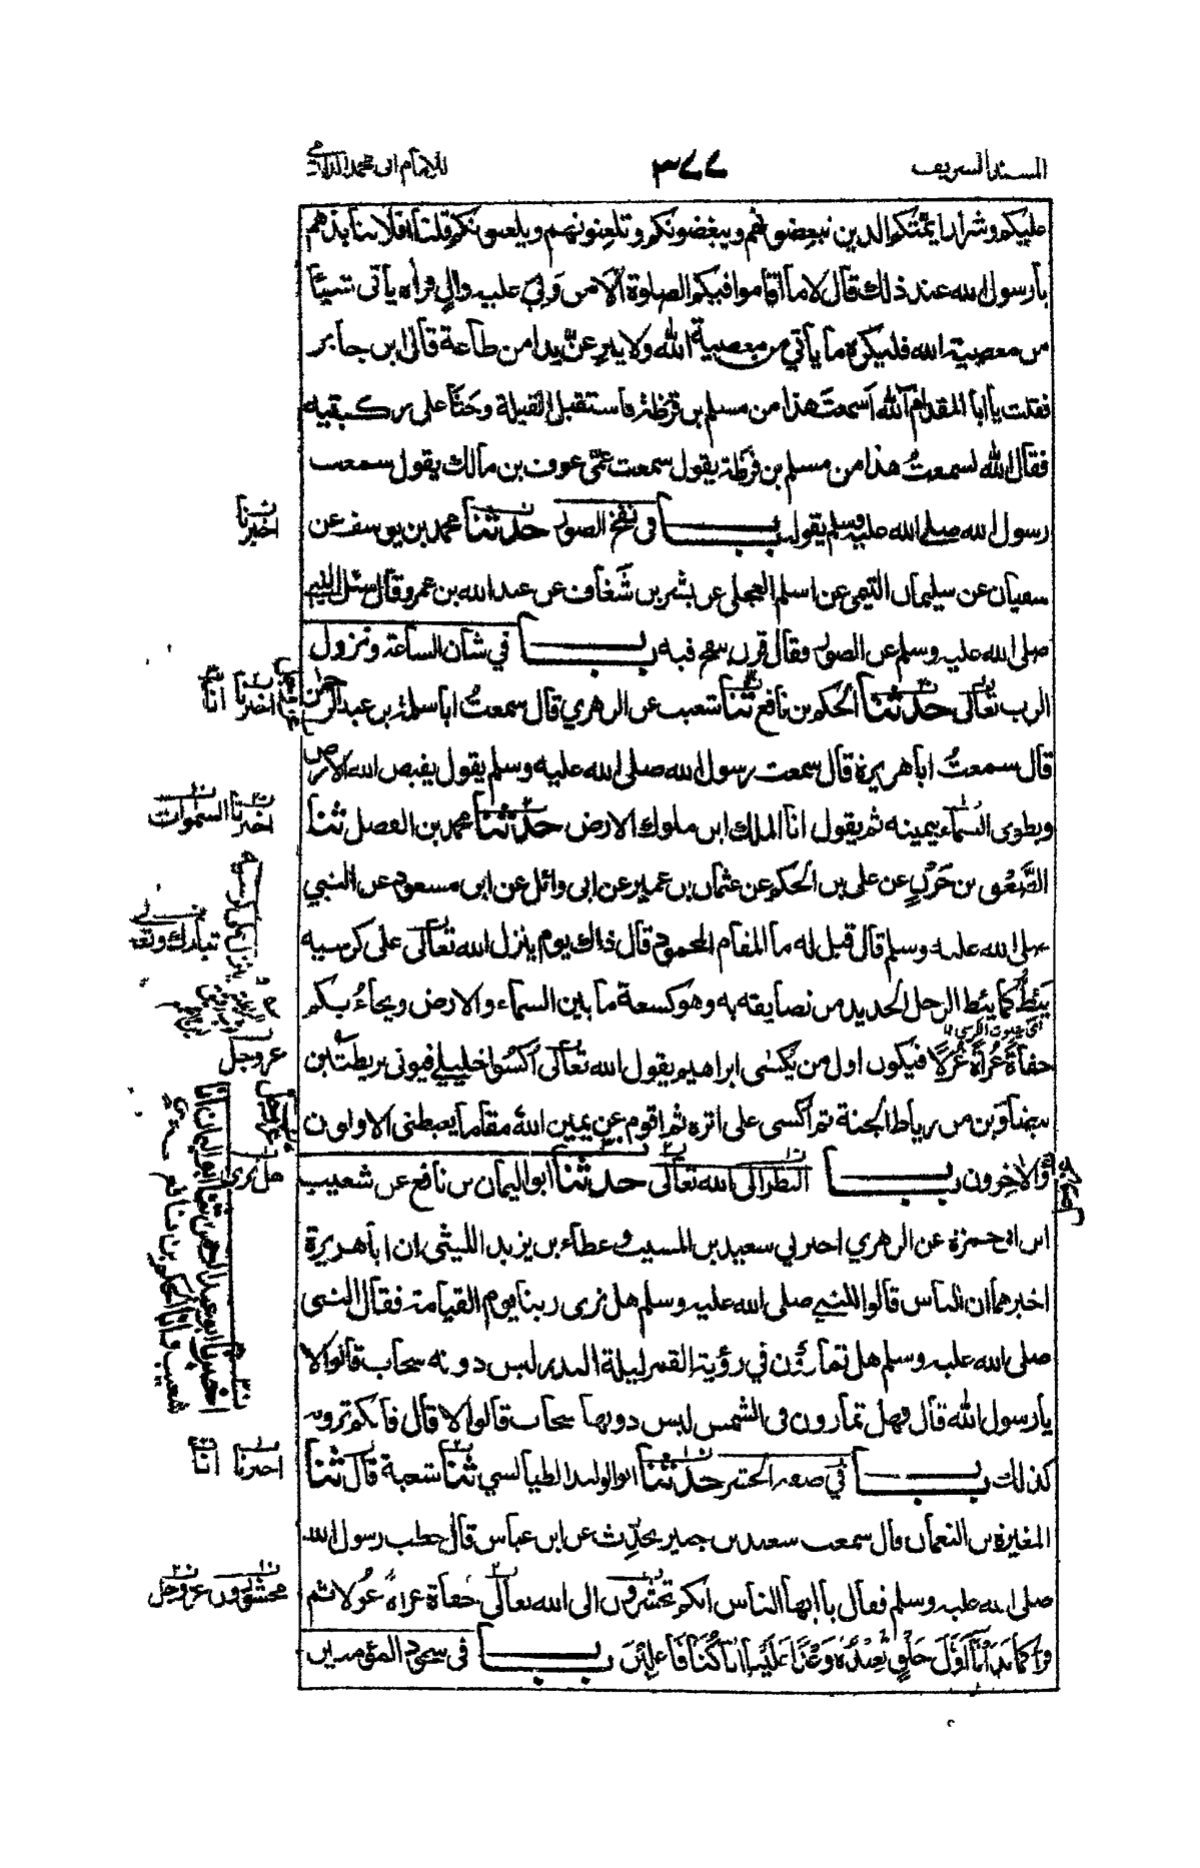 المسند الشريف
٣٧٧
للامام ابى محمد الدارمي
عليكم وشرار ائمتكم الذين تبغضونهم ويبغضونكم وتلعنونهم ويلعنونكم قلنا افلا ننابذهم
يا رسول الله عند ذلك قال لا ما اقاموا فيكم الصلوة الا من ولى عليه وال فرأه يأتى شيئا
من معصية الله فليكره ما يأتي من معصية الله ولا ينزعن يدا من طاعة قال ابن جابر
فقلت يا ابا المقدام آلله اسمعت هذا من مسلم بن قرظة فاستقبل القبلة وجثا على ركبتيه
فقال الله لسمعتُ هذا من مسلم بن قرظة يقول سمعت عمّى عوف بن مالك يقول سمعت
رسول الله صلى الله عليه وسلم يقوله بـــاب فى نفخ الصور حدثنا محمد بن يوسف عن
سفيان عن سليمان التيمى عن اسلم العجلى عن بشر بن شَغَاف عن عبد الله بن عمرو قال سئل النبي
صلى الله عليه وسلم عن الصور فقال قرن ينفخ فيه بـــاب في شأن الساعة ونزول
الرب تعالى حدثنا الحكم بن نافع ثنا شعيب عن الزهري قال سمعتُ ابا سلمة بن عبد الرحمن
قال سمعتُ ابا هريرة قال سمعت رسول الله صلى الله عليه وسلم يقول يقبض الله الارض
ويطوى السماء بيمينه ثم يقول انا الملك اين ملوك الارض حدثنا محمد بن الفضل ثنا
الصَّعْق بن حَزْنٍ عن على بن الحكم عن عثمان بن عمير عن ابى وائل عن ابن مسعود عن النبي
صلى الله عليه وسلم قال قيل له ما المقام المحمود قال ذاك يوم ينزل الله تعالى على كرسيه
يئط كما يئط الرحل الجديد من تضايقه به وهو كسعة ما بين السماء والارض ويجاءُ بكم
حفاةً عُراةً غُرلًا فيكون اول من يكسٰى ابراهيم يقول الله تعالى اكسُوا خليلي فيوتى بريطتين
بيضاوين من رياط الجنة ثم اكسى على اثره ثم اقوم عن يمين الله مقاما يغبطنى الاولون
والآخرون بـــاب النظر الى الله تعالى حدثنا ابو اليمان بن نافع عن شعيب
ابن ابى حمزة عن الزهري اخبرني سعيد بن المسيب وعطاء بن يزيد الليثى ان ابا هريرة
اخبرهما ان الناس قالوا للنبي صلى الله عليه وسلم هل نرى ربنا يوم القيامة فقال النبى
صلى الله عليه وسلم هل تمارؤن في رؤية القمر ليلة البدر ليس دونه سحاب قالوا لا
يا رسول الله قال فهل تمارون فى الشمس ليس دونها سحاب قالوا لا قال فانكم ترونه
كذلك بـــاب في صفة الحشر حدثنا ابو الوليد الطيالسي ثنا شعبة قال ثنا
المغيرة بن النعمان قال سمعت سعيد بن جبير يحدِّث عن ابن عباس قال خطب رسول الله
صلى الله عليه وسلم فقال يا ايها الناس انكم تحشرون الى الله تعالى حُفاة عراة غُرلا ثم
قرأ كَمَا بَدَأْنَا أَوَّلَ خَلْقٍ نُّعِيدُهُ وَعْدًا عَلَيْنَا إِنَّا كُنَّا فَاعِلِيْنَ بـــاب فى سجود المؤمنين
اخبرنا
اخبرنا انا
اخبرنا السموات
تبارك وتعٰ
عزوجل
هل نرى
اخبرنا انا
محشورون عزوجل